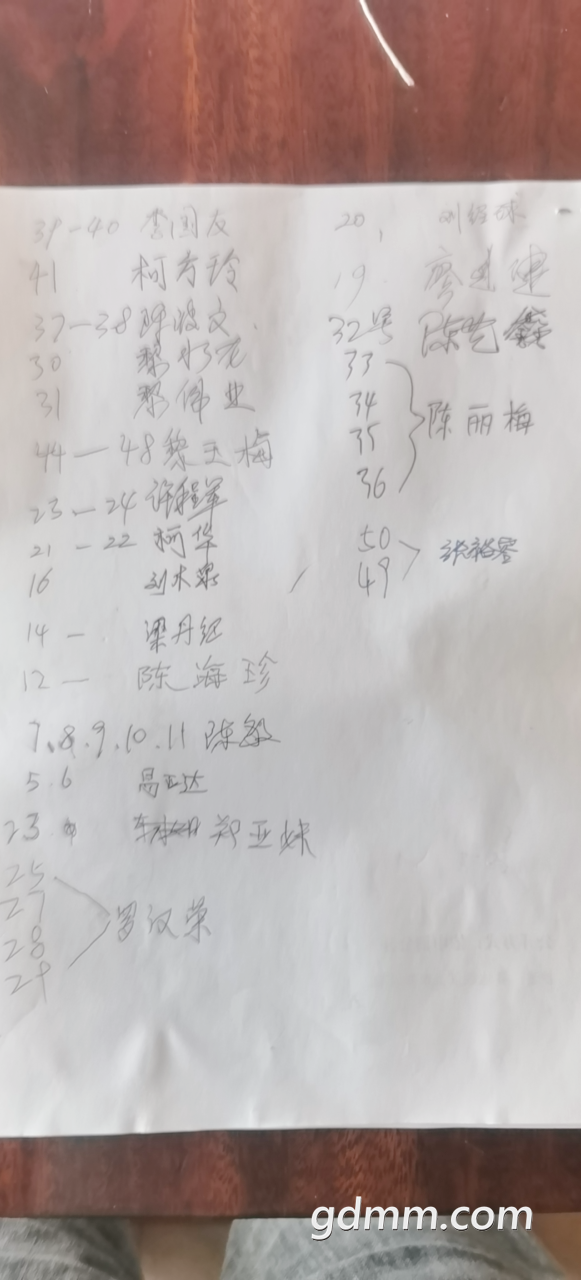 39-40 李国友
41 柯方玲
37-38 陈波文
30 黎
31 黎伟业
44-48 黎玉梅
23-24 许程军
21-22 柯华
16 刘木荣
14- 梁丹
12- 陈海珍
7、8.9.10.11 陈毅
5.6 亚达
23 郑亚妹
25
27
28
29
罗汉荣
20,
19 廖建
32号 陈艺鑫
33
34
35
36
陈丽梅
50
49
gdmm.com